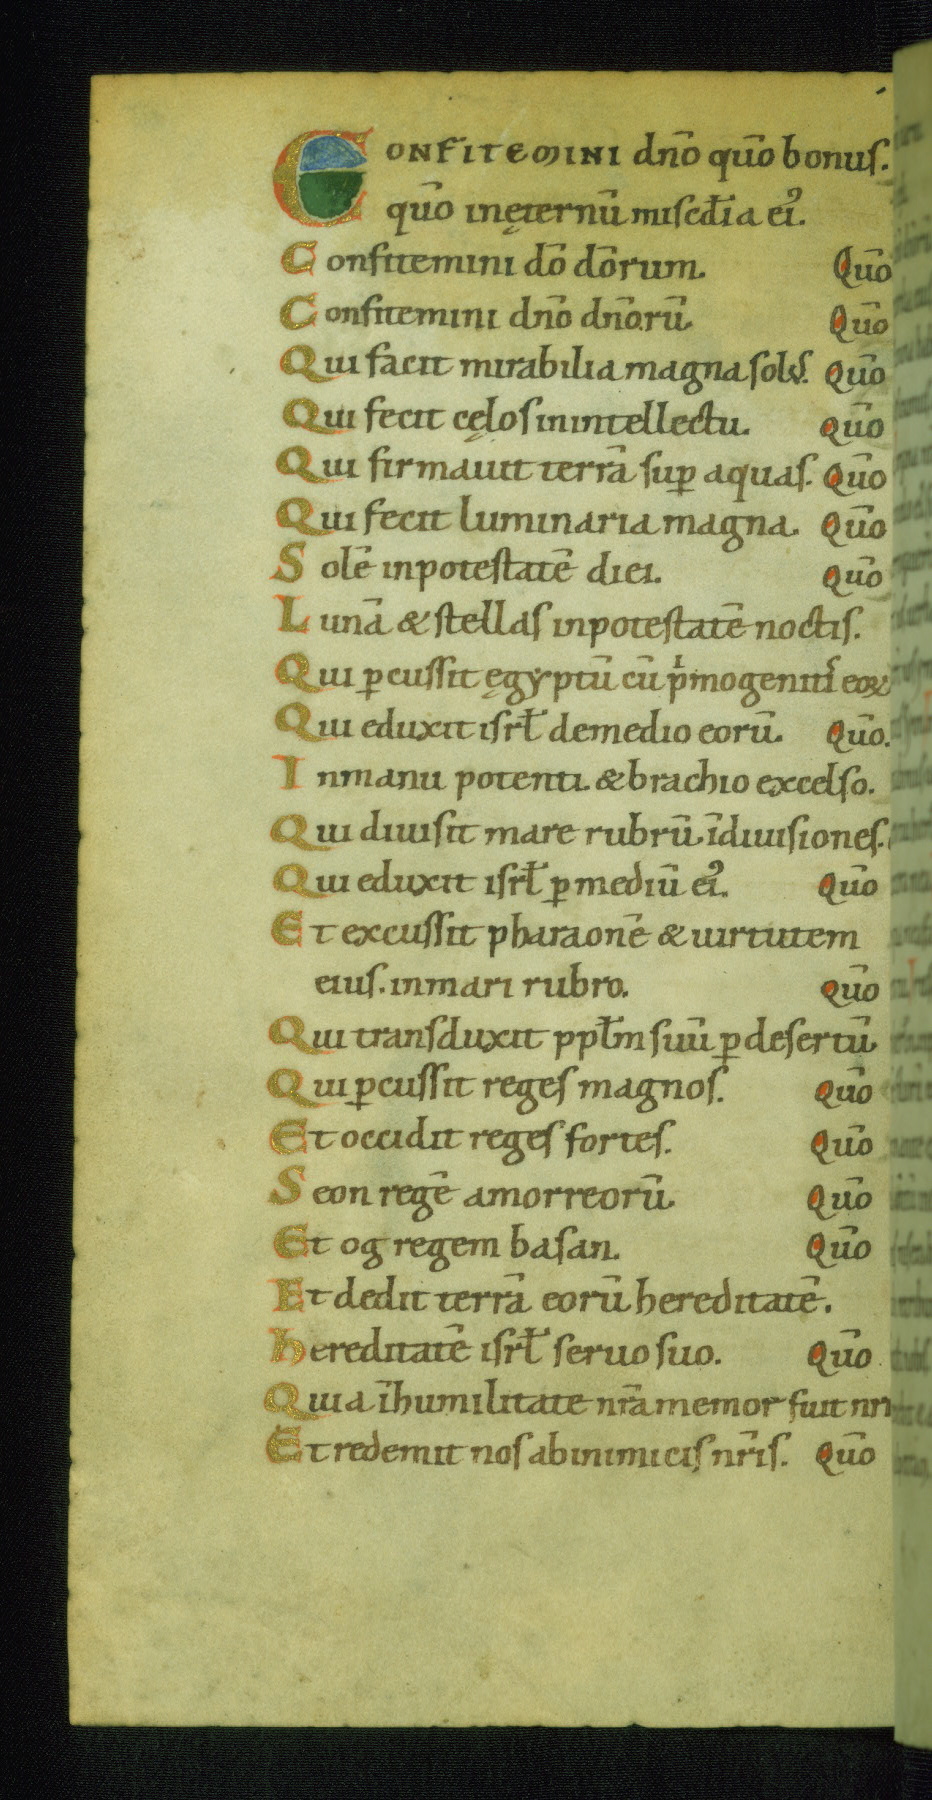 CONFITEMINI dn̄o qūo bonus.
qūo inęternū miscd̄ia ei᾽.
Confitemini dō dōrum. Qūo
Confitemini dn̄o dn̄orū Qūo
Qui facit mirabilia magna solꝰ. Qūo
Qui fecit cęlos inintellectu. Qūo
Qui firmauit terrā suꝑ aquas. Qūo
Qui fecit luminaria magna. Qūo
Solē inpotestatē diei. Qūo
Lunā & stellas inpotestatē noctis.
Qui ꝑcussit ęgyptū cū pͥmogenitiſ eoꝝ
Qui eduxit isrł demedio eorū. Qūo.
Inmanu potenti. & brachio excelso.
Qui diuisit mare rubrū īdiuisiones.
Qui eduxit isrł ꝑ mediū ei᾽. Qūo
Et excussit pharaonē & uirtutem
eius. inmari rubro. Qūo
Qui transduxit ppłm suū ꝑ desertū
Qui ꝑcussit reges magnos. Qūo
Et occidit reges fortes. Qūo
Seon regē amorreorū Qūo
Et og regem basan. Qūo
Et dedit terrā eorū hereditatē.
hereditatē isrł seruo suo. Qūo
Quia īhumilitate nr̄a memor fuit nri
Et redemit nos abinimicis nr̄is. Qūo